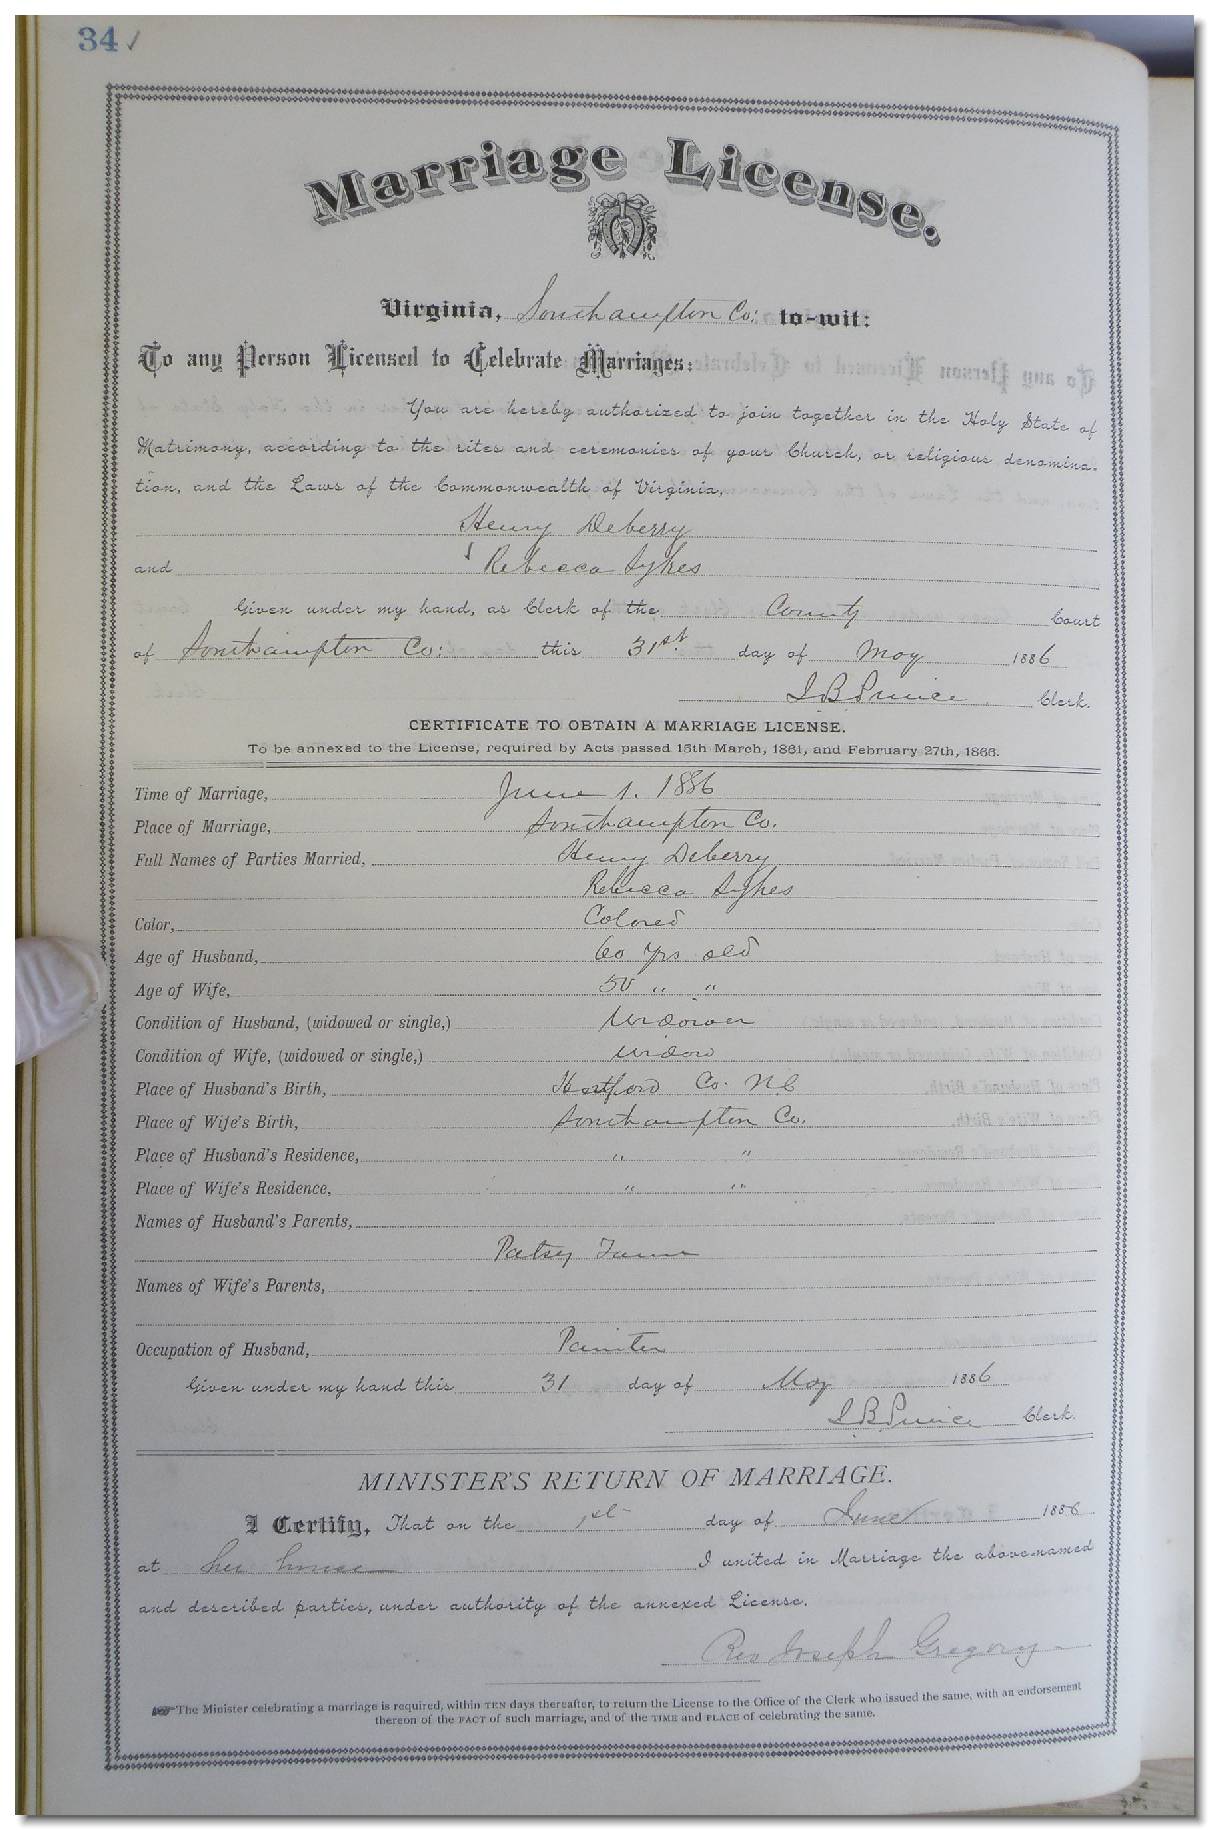 34 ✓
Marriage License.
Virginia, Southampton Co: to-wit:
To any Person Licensed to Celebrate Marriages:
You are hereby authorized to join together in the Holy State of
Matrimony, according to the rites and ceremonies of your Church, or religious denomina-
tion, and the Laws of the Commonwealth of Virginia,
Henry Deberry
and Rebecca Sykes
Given under my hand, as Clerk of the County Court
of Southampton Co: this 31st day of May 1886
Clerk.
CERTIFICATE TO OBTAIN A MARRIAGE LICENSE.
To be annexed to the License, required by Acts passed 15th March, 1861, and February 27th, 1866.
Time of Marriage, June 1. 1886
Place of Marriage, Southampton Co.
Full Names of Parties Married, Henry Deberry
Rebecca Sykes
Color, Colored
Age of Husband, 60 yrs old
Age of Wife, 50 " "
Condition of Husband, (widowed or single,) Widower
Condition of Wife, (widowed or single,) Widow
Place of Husband's Birth, Hertford Co. N C
Place of Wife's Birth, Southampton Co.
Place of Husband's Residence, " "
Place of Wife's Residence, " "
Names of Husband's Parents,
Patsy
Names of Wife's Parents,
Occupation of Husband, Painter
Given under my hand this 31 day of May 1886
Clerk.
MINISTER'S RETURN OF MARRIAGE.
I Certify, That on the 1st day of June 1886
at her house I united in Marriage the above-named
and described parties, under authority of the annexed License.
Rev Joseph Gregory
☞The Minister celebrating a marriage is required, within TEN days thereafter, to return the License to the Office of the Clerk who issued the same, with an endorsement
thereon of the FACT of such marriage, and of the TIME and PLACE of celebrating the same.